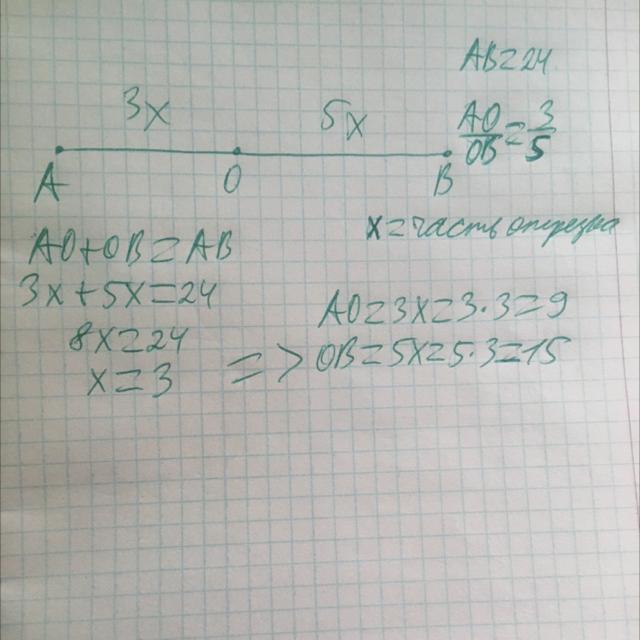 AB=24
3x 5x
AO/OB=3/5
A O B
x=часть отрезка
AO+OB=AB
3x+5x=24
AO=3x=3·3=9
8x=24
=> OB=5x=5·3=15
x=3